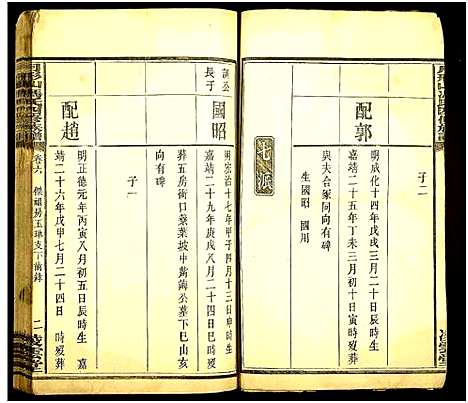 子二
配郭
明成化十四年戊戌三月二日辰時生
嘉靖二十五年丁未三月十九日 時歿葬
與夫合冢同向有碑
生國昭 國用
七派
公長子
國昭
明宏治十七年甲子四月十三日申時生
嘉靖二十九年庚戌二月二十 日 時歿
葬五房衖口蔡葉坡中黃 公墓下巳山亥
向有碑
子一
配趙
明正德元年丙寅八月初五日辰時生 嘉
靖二十六年戊申七月二十四日 時歿葬
卷六
支下
二
凌雲堂
凌雲堂